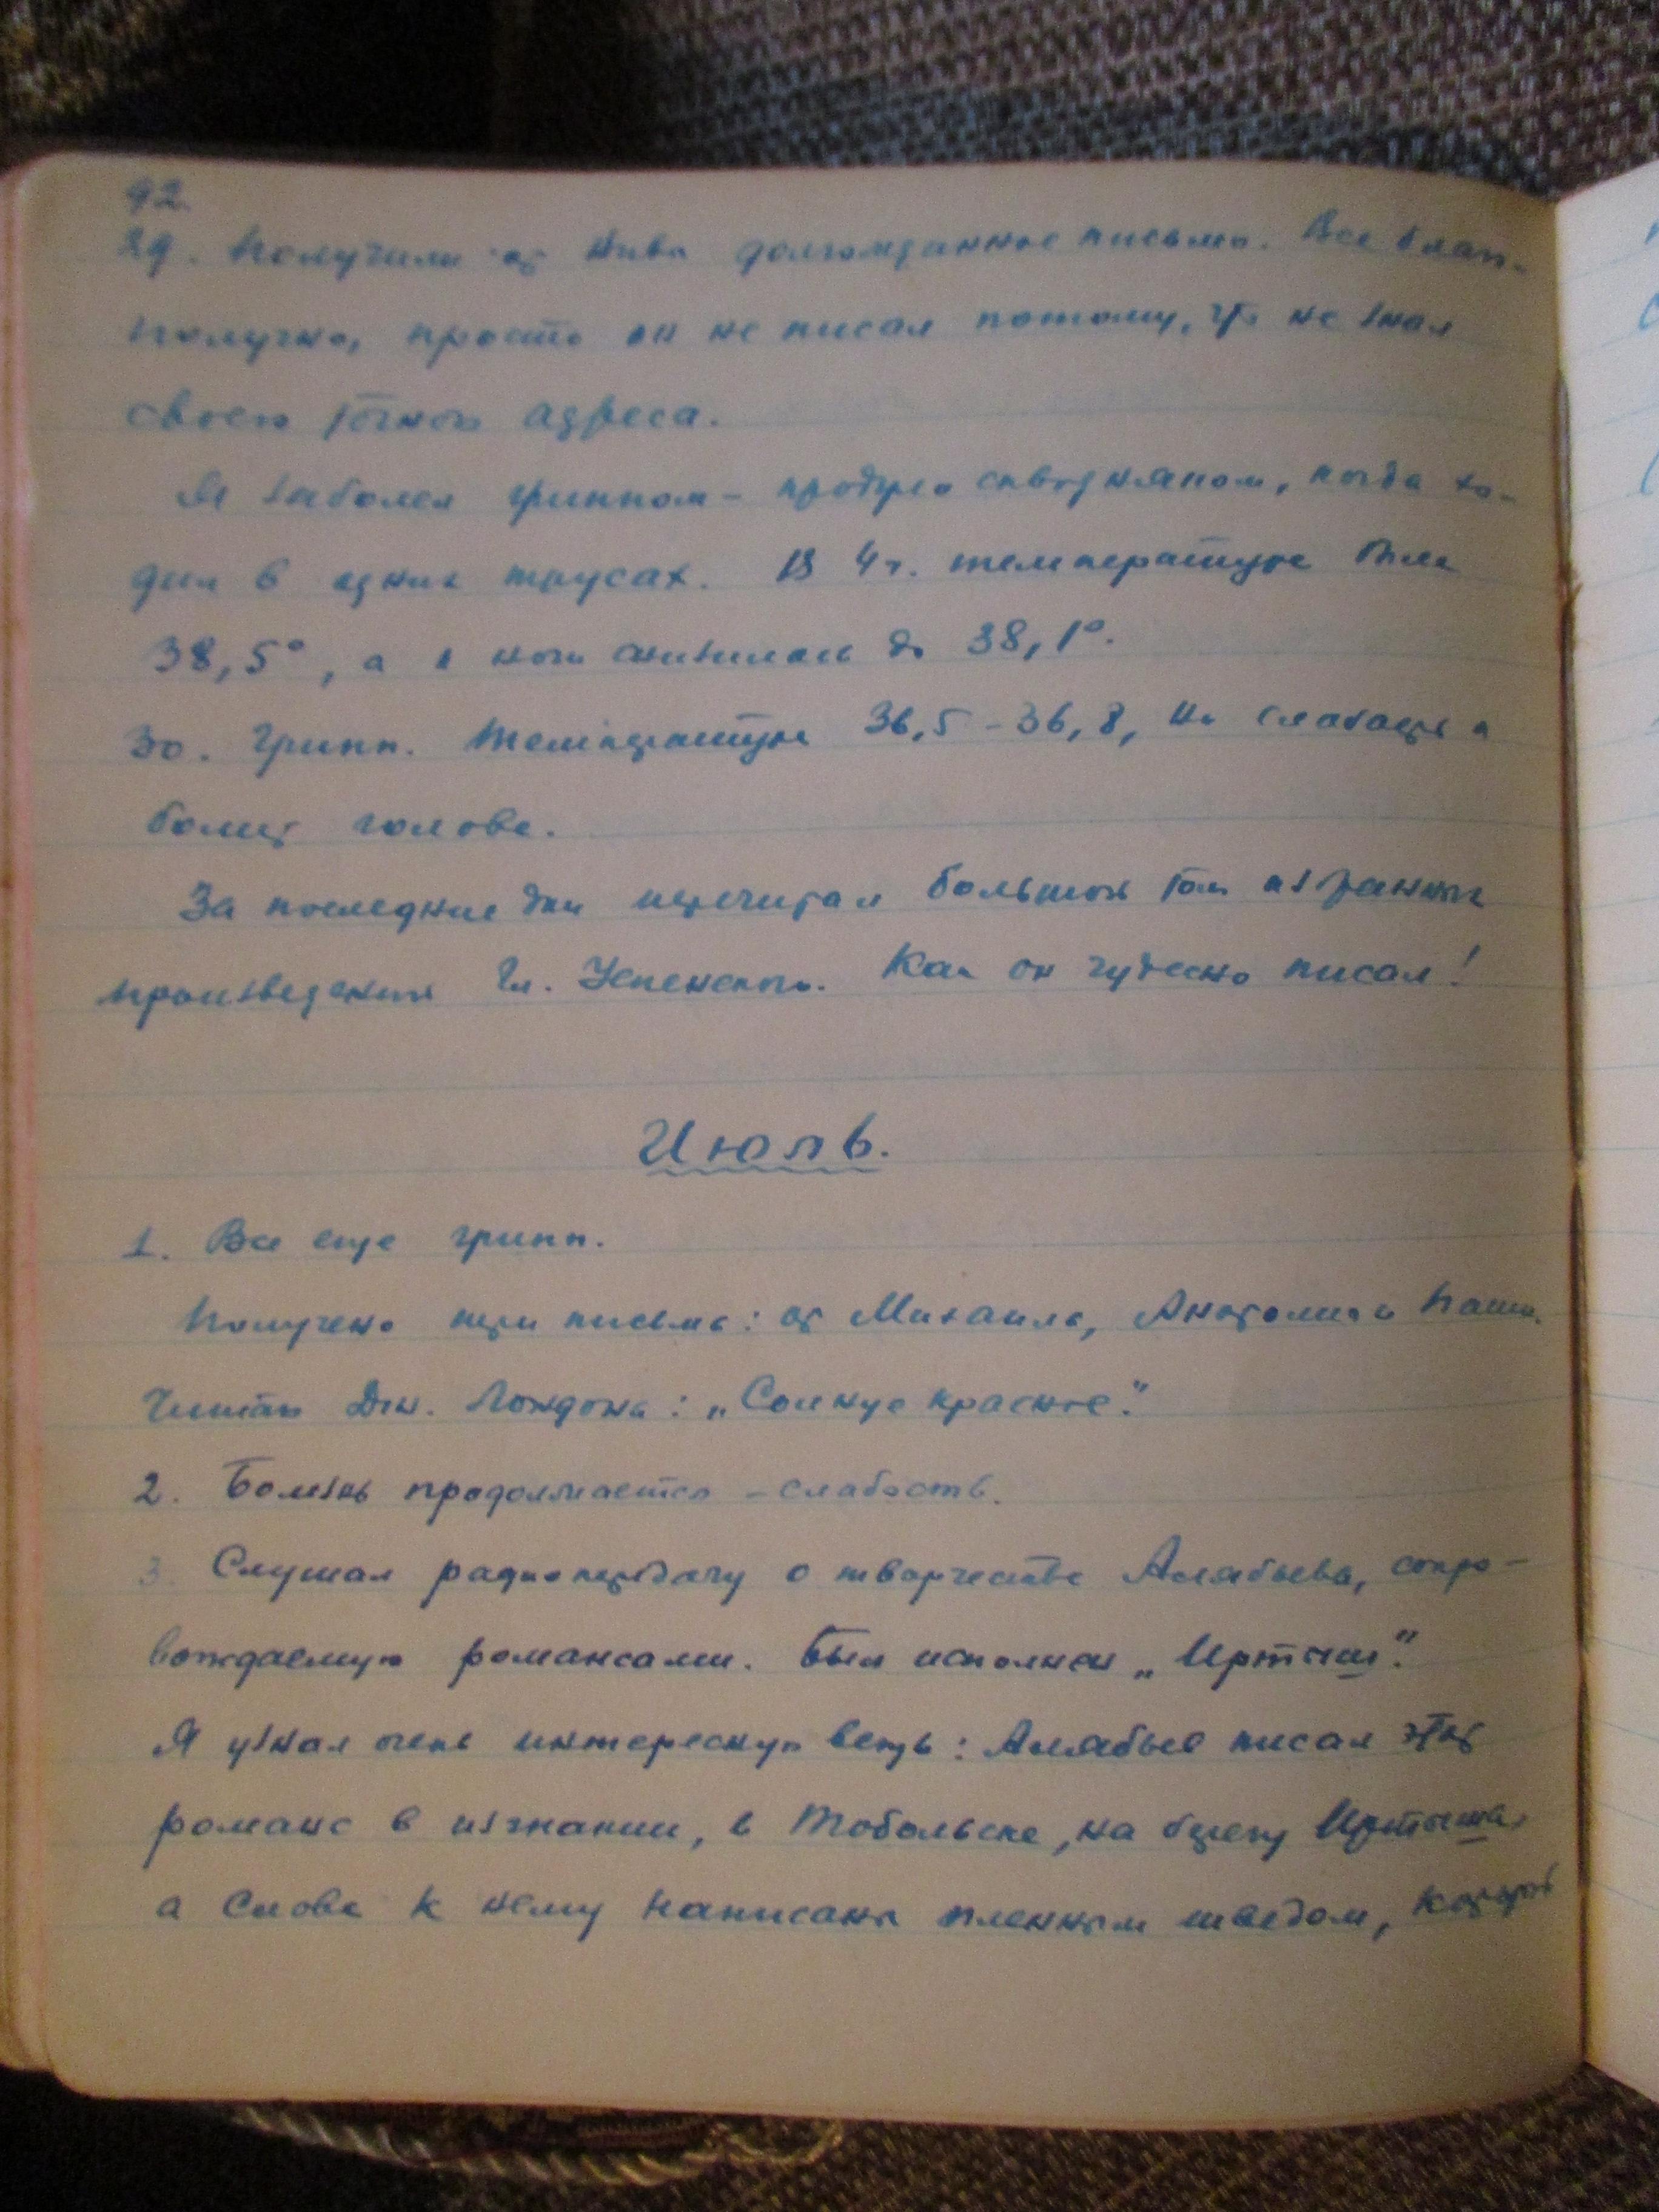 92.
29. Получили от долгожданное письмо. Все благо-
получно, просто он не писал потому, что не знал
своего точного адреса.
Я заболел гриппом - продуло сквозняком, когда хо-
дил в одних трусах. В 4 ч. температура была
38,5°, а к ночи снизилась до 38,1°.
30. Грипп. Температура 36,5 - 36,8, но слабость и
болит голова.
За последние дни перечитал большой том избранных
произведений Гл. Успенского. Как он чудесно писал!
Июль.
1. Все еще грипп.
Получено три письма: от Михаила, Анатолия и Паши.
Читаю Дж. Лондона: „Солнце красное".
2. Болезнь продолжается - слабость.
3. Слушал радиопередачу о творчестве Алябьева, сопро-
вождаемую романсами. Был исполнен „Иртыш".
Я узнал очень интересную вещь: Алябьев писал этот
романс в изгнании, в Тобольске, на берегу Иртыша,
а слова к нему написаны пленным шведом, который